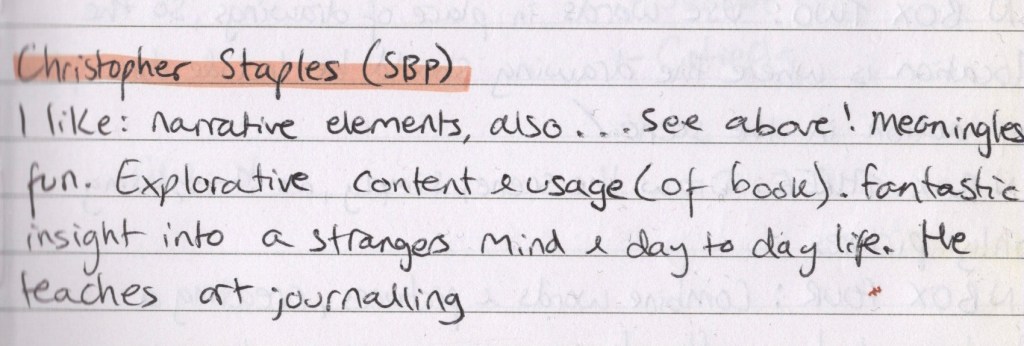 Christopher Staples (SBP)
I like: narrative elements, also....see above! meaningles
fun. Explorative content & usage (of book). fantastic
insight into a strangers mind & day to day life. He
teaches art journalling